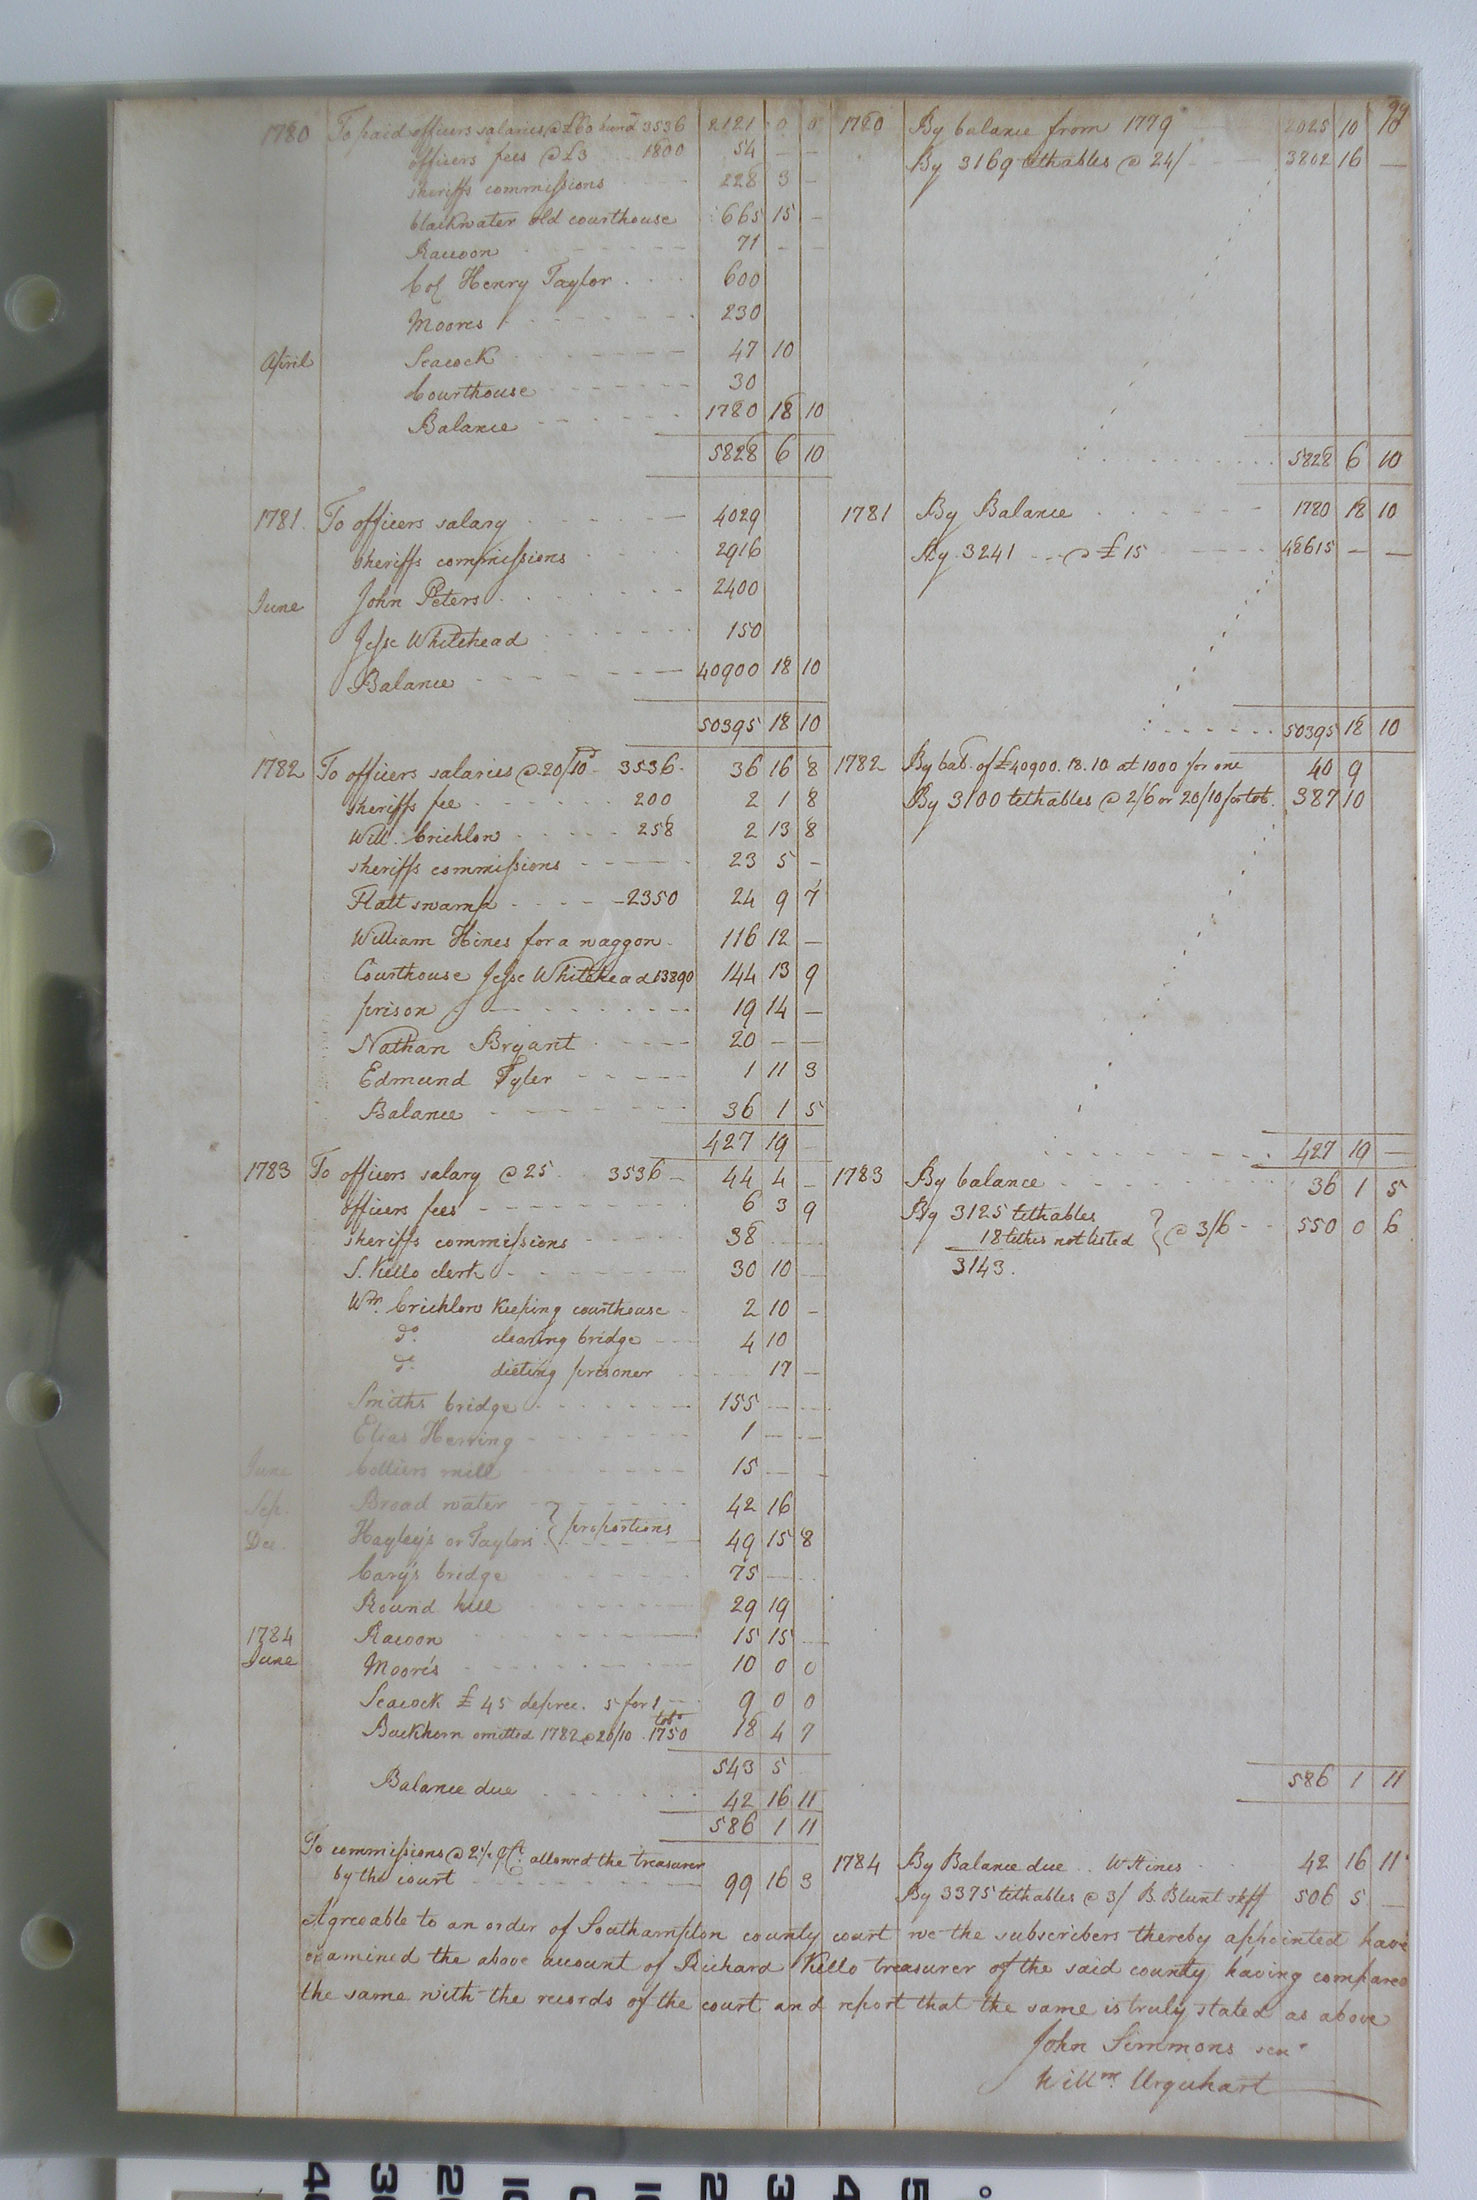 99
1780 To paid officers salaries @ £60 hund 3536 2121 0 0
officers fees @ £3 1800 54 — —
sheriffs commissions 228 3 —
blackwater old courthouse 665 15 —
Racoon 71 — —
Col Henry Taylor 600
Moores 230
April Seacock 47 10
Courthouse 30
Balance 1780 18 10
5828 6 10
1780 By balance from 1779 2025 10 10
By 3169 tithables @ 24/ 3802 16 —
5828 6 10
1781 To officers salary 4029
sheriffs commissions 2916
June John Peters 2400
Jesse Whitehead 150
Balance 40900 18 10
50395 18 10
1781 By Balance 1780 18 10
By 3241 @ £15 48615 — —
50395 18 10
1782 To officers salaries @ 20/10 3536 36 16 8
sheriffs fee 200 2 1 8
Will. Crichlow 258 2 13 8
sheriffs commissions 23 5 —
Flatt swamp 2350 24 9 7
William Hines for a waggon 116 12 —
Courthouse Jesse Whitehead 13890 144 13 9
prison 19 14 —
Nathan Bryant 20 — —
Edmund Tyler 1 11 3
Balance 36 1 5
427 19 —
1782 By bal. of £40900.18.10 at 1000 for one 40 9
By 3100 tethables @ 2/6 or 20/10 for tob. 387 10
427 19 —
1783 To officers salary @ 25 3536 44 4 —
officers fees 6 3 9
sheriffs commissions 38
S. Kello clerk 30 10 —
Wm. Crichlow keeping courthouse 2 10 —
do. clearing bridge 4 10
do. dieting prisoner 17 —
Smiths bridge 155 — —
Elias Herring 1 — —
June Colliers mill 15 — —
Sep. Broad water 42 16
Dec. Hayley's or Taylors } proportions 49 15 8
Cary's bridge 75 —
Round hill 29 19
1784 Racoon 15 15 —
June Moore's 10 0 0
Seacock £45 deprec. 5 for 1 9 0 0
Buckhorn omitted 1782 @ 20/10 tobo 1750 18 4 7
543 5
Balance due 42 16 11
586 1 11
1783 By balance 36 1 5
By 3125 tethables
18 tithes not listed } @ 3/6 550 0 6
3143.
586 1 11
To commissions @ 2½ pCt. allowed the treasurer
by the court 99 16 3
1784 By Balance due .. W Hines 42 16 11
By 3375 tithables @ 3/ B. Blunt shff 506 5 —
Agreeable to an order of Southampton county court we the subscribers thereby appointed have
examined the above account of Richard Kello treasurer of the said county having compared
the same with the records of the court and report that the same is truly stated as above
John Simmons senr
Willm. Urquhart
40 30 20 10 0 10 20 30 40 50